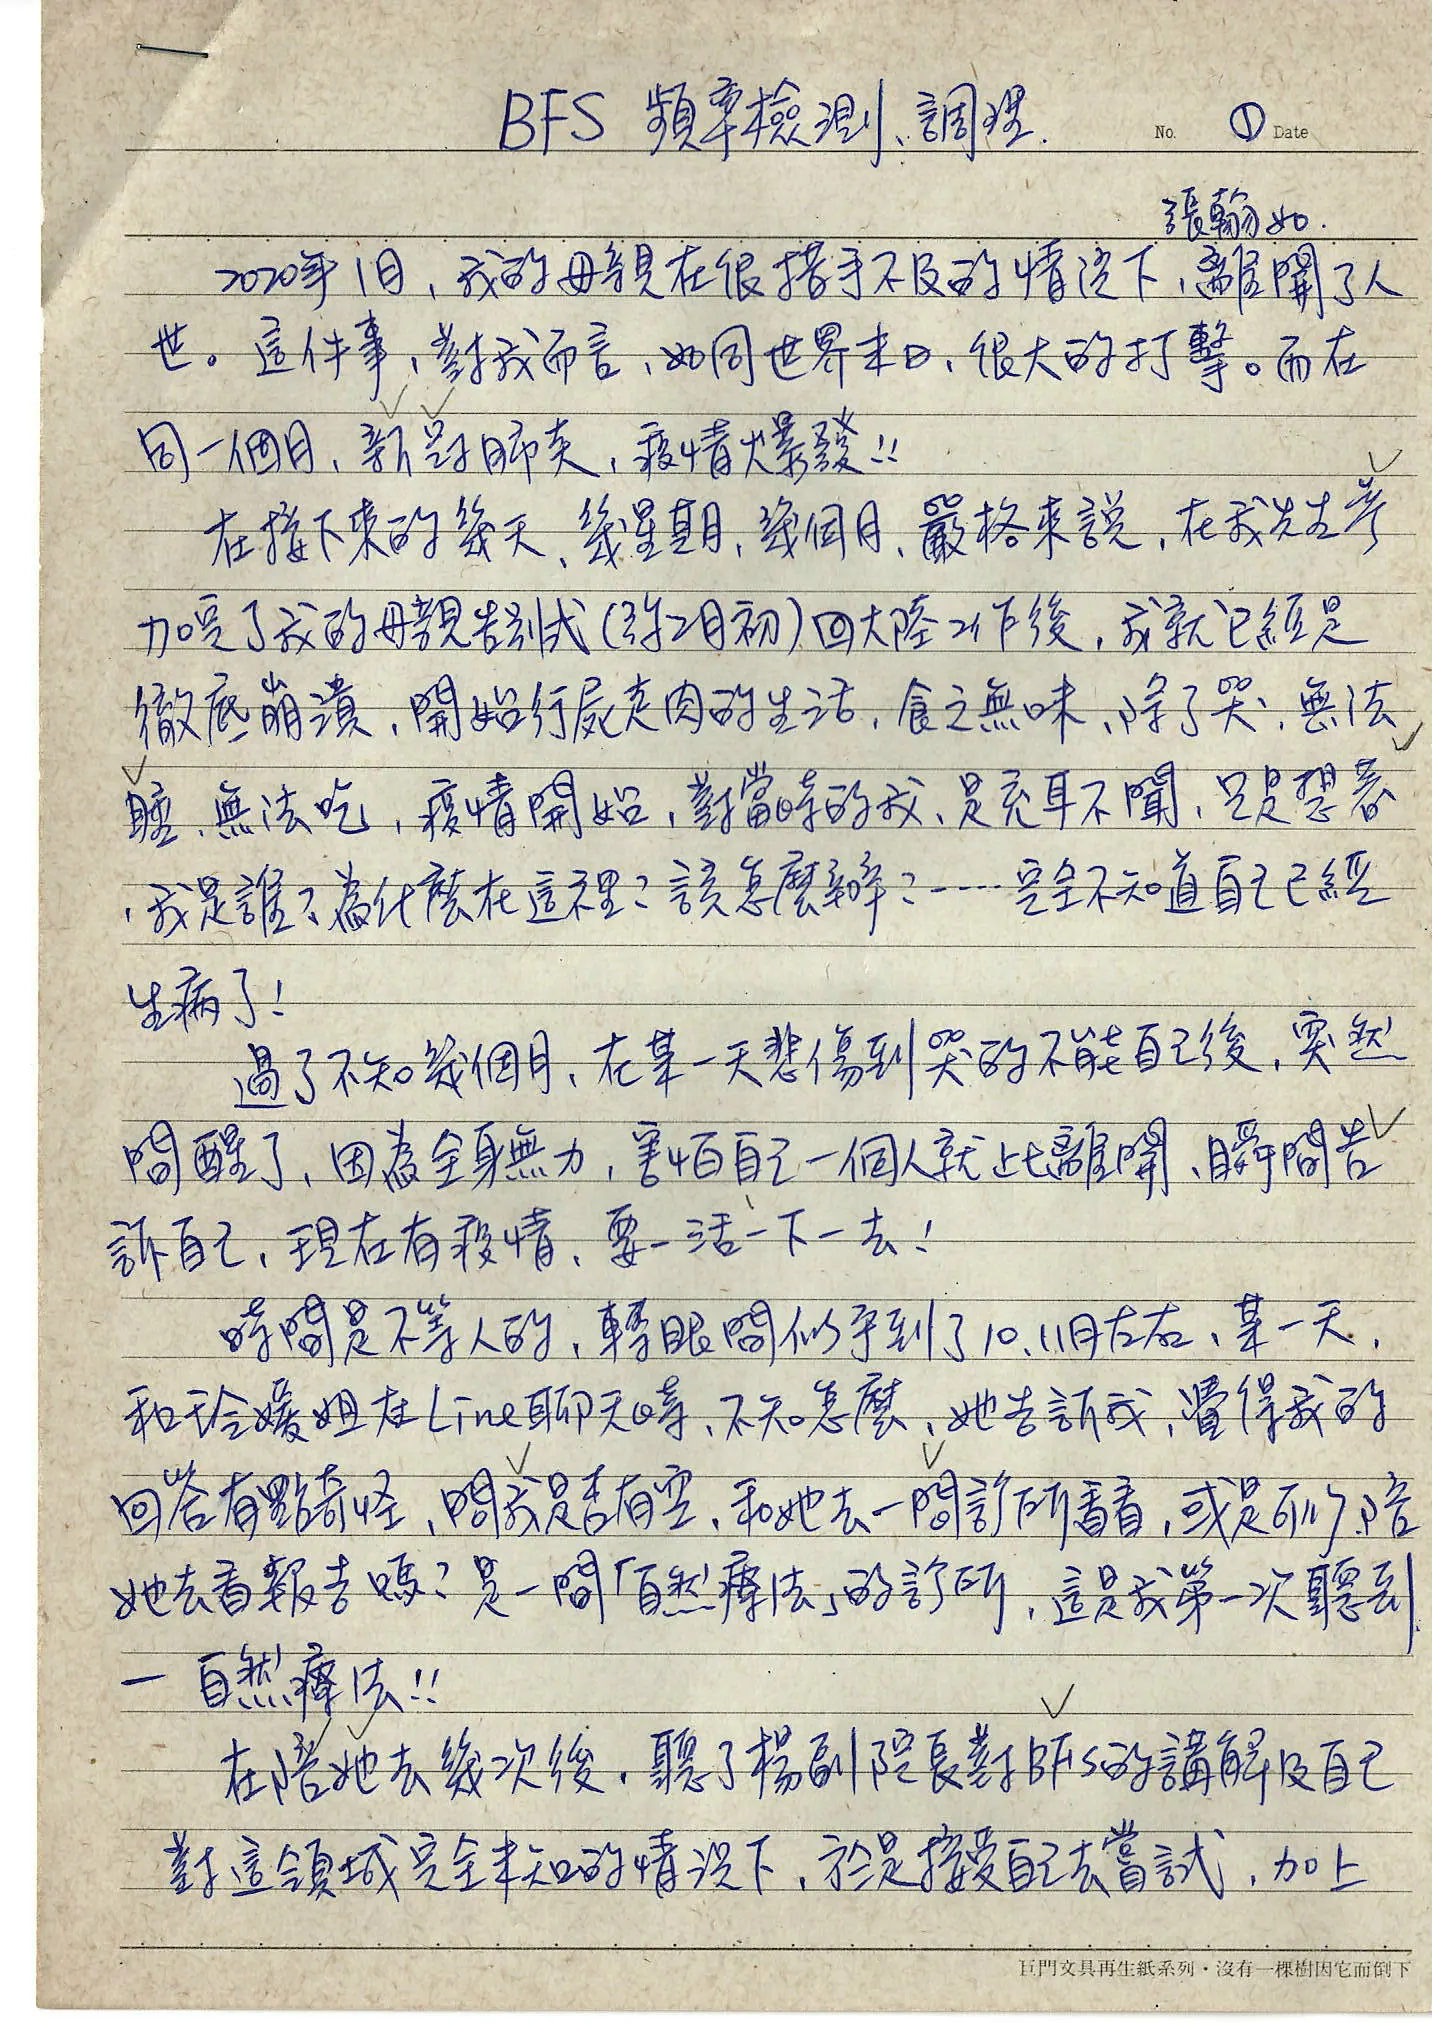 BFS 頻率檢測、調理.
No. ① Date
張翰如.
2020年1月，我的母親在很措手不及的情況下，離開了人
世。這件事，對我而言，如同世界末日，很大的打擊。而在
同一個月，新冠肺炎，疫情爆發!!
在接下來的幾天、幾星期，幾個月，嚴格來說，在我先生參
加完了我的母親告別式(約2月初)回大陸工作後，我就已經是
徹底崩潰，開始行屍走肉的生活，食之無味，除了哭，無法
睡、無法吃，疫情開始，對當時的我，是充耳不聞，只是想著
，我是誰？為什麼在這裡？該怎麼辦？-----完全不知道自己已經
生病了!
過了不知幾個月，在某一天悲傷到哭的不能自己後，突然
間醒了，因為全身無力，害怕自己一個人就比離開，瞬間告
訴自己，現在有疫情，要一活一下一去!
時間是不等人的，轉眼間似乎到了10.11月左右，某一天，
和玲媛姐在Line聊天時，不知怎麼，她告訴我，覺得我的
回答有點奇怪，問我是否有空，和她去一間診所看看，或是可以陪
她去看報告嗎？是一間「自然療法」的診所，這是我第一次聽到
一自然療法!!
在陪她去幾次後，聽了楊副院長對BFS的講解及自己
對這領域完全未知的情況下，於是接受自己去嘗試，加上
巨門文具再生紙系列・沒有一棵樹因它而倒下